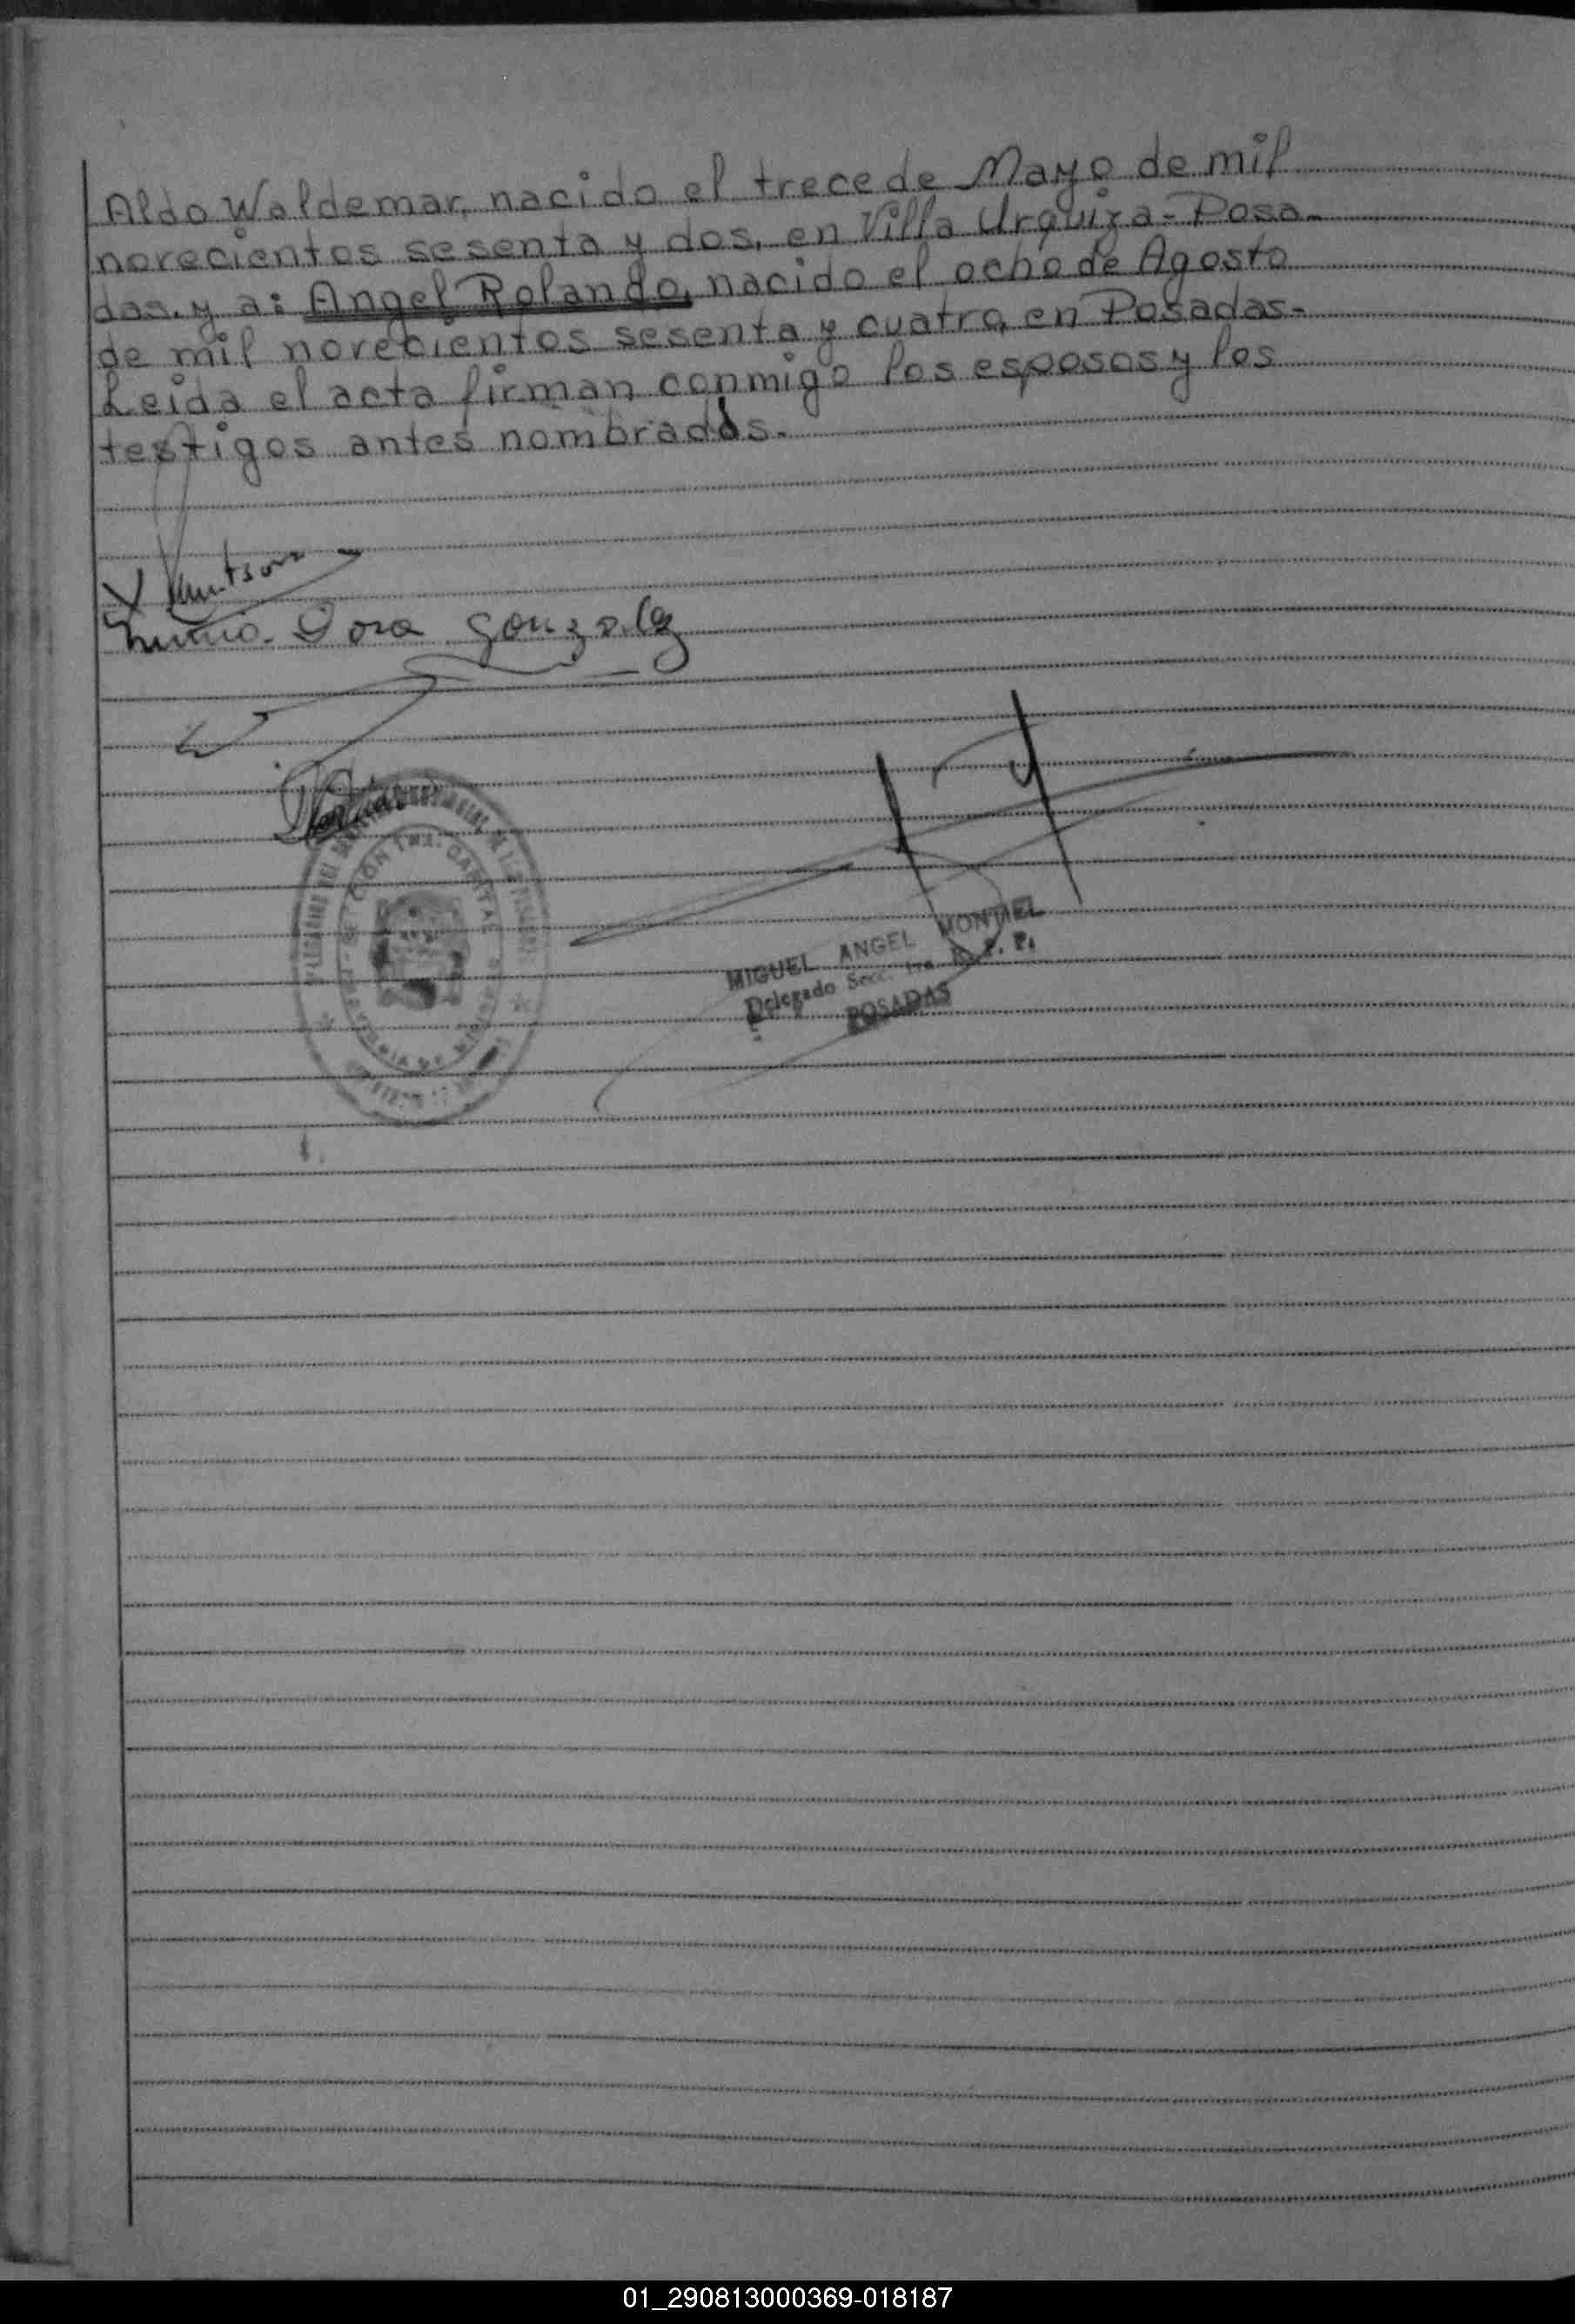 Aldo Waldemar, nacido el trece de Mayo de mil
novecientos sesenta y dos, en Villa Urquiza - Posa-
das. y a: Angel Rolando, nacido el ocho de Agosto
de mil novecientos sesenta y cuatro, en Posadas-
Leida el acta firman conmigo los esposos y los
testigos antes nombrados.-
Dora Gonzalez
MIGUEL ANGEL MONTIEL
Delegado Secc. 1ra. R. P. P.
POSADAS
01_290813000369-018187